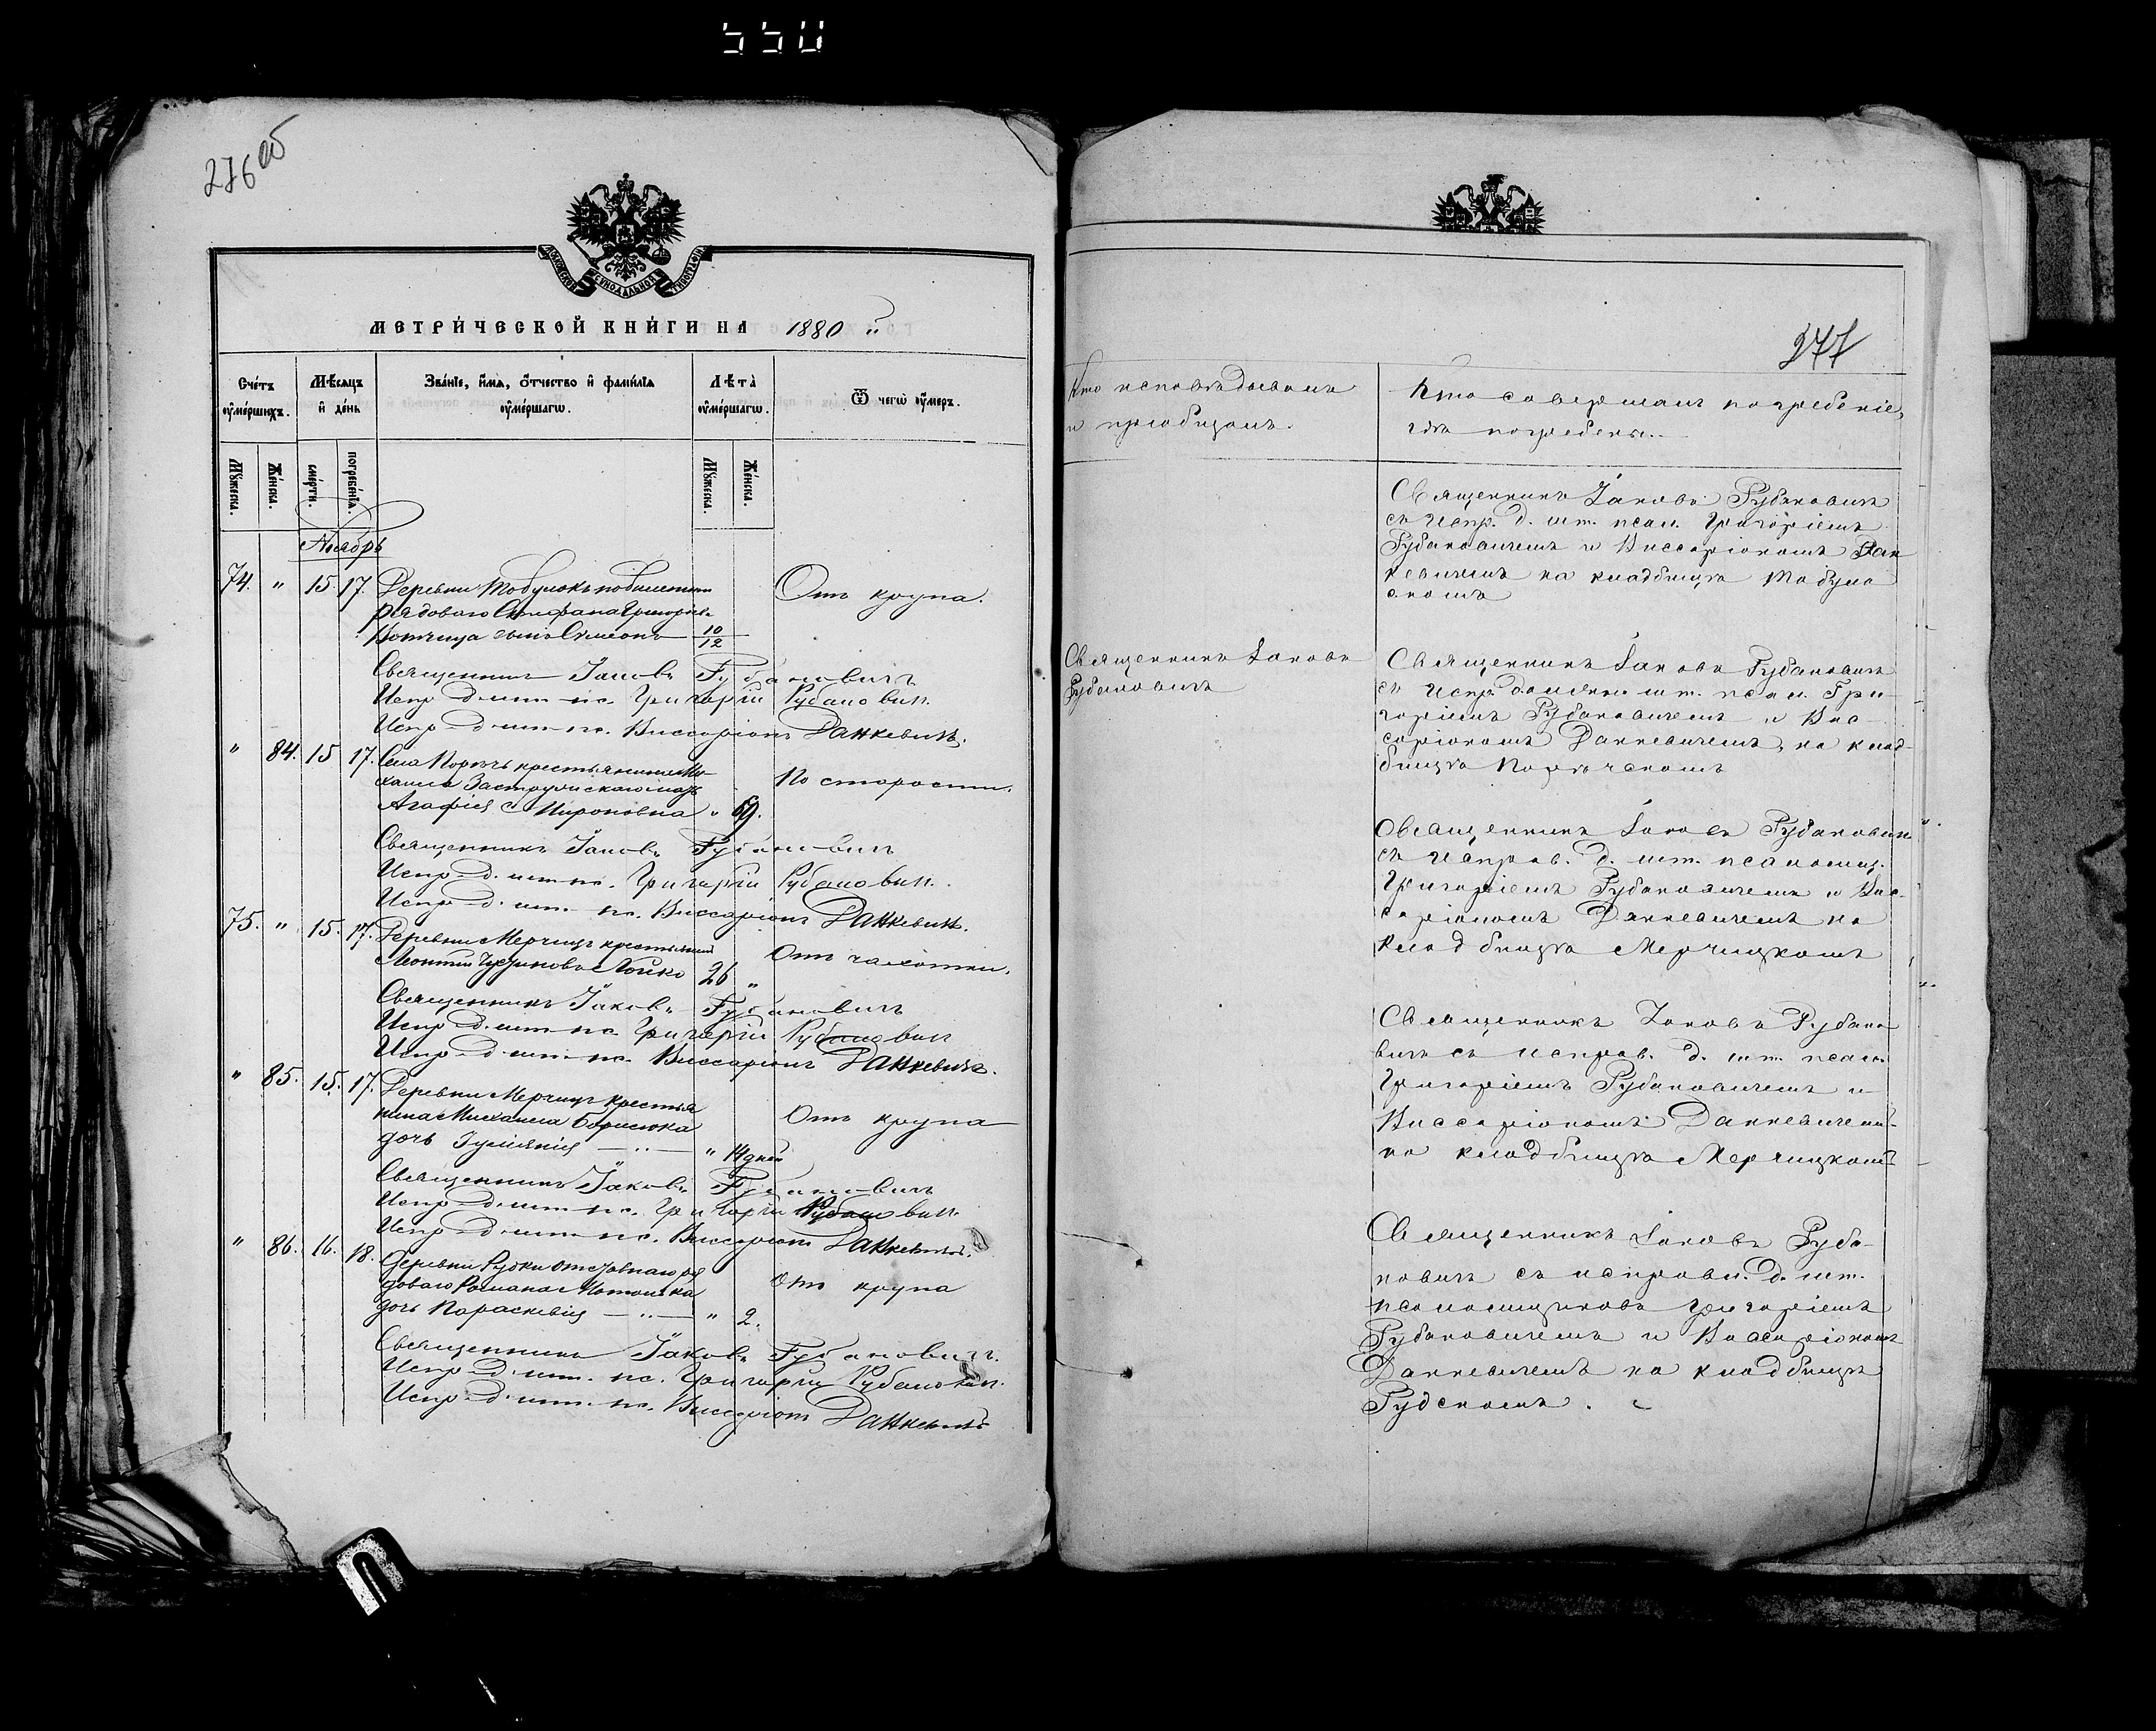 550
276 об
МОСКОВСКОЙ СѴНОДАЛЬНОЙ ТИПОГРАФІИ
МЕТРИ́ЧЕСКОЙ КНИ́ГИ НА 1880
Сче́тъ оу҆ме́ршихъ.
Мѣ́сяцъ и҆ де́нь
Зва́нїе, и҆́мѧ, ѻ҆́тчество и҆ фами́лїѧ оу҆ме́ршагѡ.
Лѣ́та оу҆ме́ршагѡ.
Ѿ чегѡ̀ оу҆́меръ.
Мꙋ́жеска.
Же́нска.
сме́рти.
погребе́нїѧ.
Мꙋ́жеска.
Же́нска.
Ноябрь
74. " 15. 17. Деревни Тобулокъ
рядоваго Стефана Григорьева
сынъ Симеонъ 10/12
Отъ крупа.
Священникъ Іаковъ Рубановичъ
Испр. д. шт. пс. Григорій Рубановичъ.
Испр. д. шт. пс. Виссаріонъ Данкевичъ.
" 84. 15 17. Села Порѣчъ крестьянина Ми-
хаила
Агафія Мироновна " 69.
По старости.
Священникъ Іаковъ Рубановичъ
Испр. д. шт. пс. Григорій Рубановичъ.
Испр. д. шт. пс. Виссаріонъ Данкевичъ.
75. " 15. 17. Деревни Мерчицъ крестьянинъ
Леонтій 26 "
Отъ чахотки.
Священникъ Іаковъ Рубановичъ
Испр. д. шт. пс. Григорій Рубановичъ
Испр. д. шт. пс. Виссаріонъ Данкевичъ.
" 85. 15. 17. Деревни Мерчицъ крестья
нина Михаила Борисюка
дочь Іуліянія " 14 дней
Отъ крупа
Священникъ Іаковъ Рубановичъ
Испр. д. шт. пс. Григорій Рубановичъ.
Испр. д. шт. пс. Виссаріонъ Данкевичъ.
" 86. 16. 18. Деревни Рудки отставнаго ря
доваго Романа
дочь Параскевія " 2.
Отъ крупа
Священникъ Іаковъ Рубановичъ.
Испр. д. шт. пс. Григорій Рубановичъ.
Испр. д. шт. пс. Виссаріонъ Данкевичъ
277
Кто исповѣдывалъ
и пріобщалъ.
Кто совершалъ погребеніе,
гдѣ погребены.
Священникъ Іаковъ Рубановичъ
съ испр. д. шт. псал. Григоріемъ
Рубановичемъ и Виссаріономъ Дан
кевичемъ на кладбищѣ Тобуло
скомъ
Священникъ Іаковъ
Рубановичъ
Священникъ Іаковъ Рубановичъ
съ испр. должн. шт. псал. Гри-
горіемъ Рубановичемъ и Вис-
саріономъ Данкевичемъ, на клад-
бищѣ Порѣчскомъ
Священникъ Іаковъ Рубановичъ
съ исправ. д. шт. псаломщ.
Григоріемъ Рубановичемъ и Вис-
саріономъ Данкевичемъ на
кладбищѣ Мерчицкомъ
Священникъ Іаковъ Рубано
вичъ съ исправ. д. шт. псал.
Григоріемъ Рубановичемъ и
Виссаріономъ Данкевичемъ
на кладбищѣ Мерчицкомъ
Священникъ Іаковъ Руба-
новичъ съ исправл. д. шт.
псаломщиковъ Григоріемъ
Рубановичемъ и Виссаріономъ
Данкевичемъ на кладбищѣ
Рудскомъ.